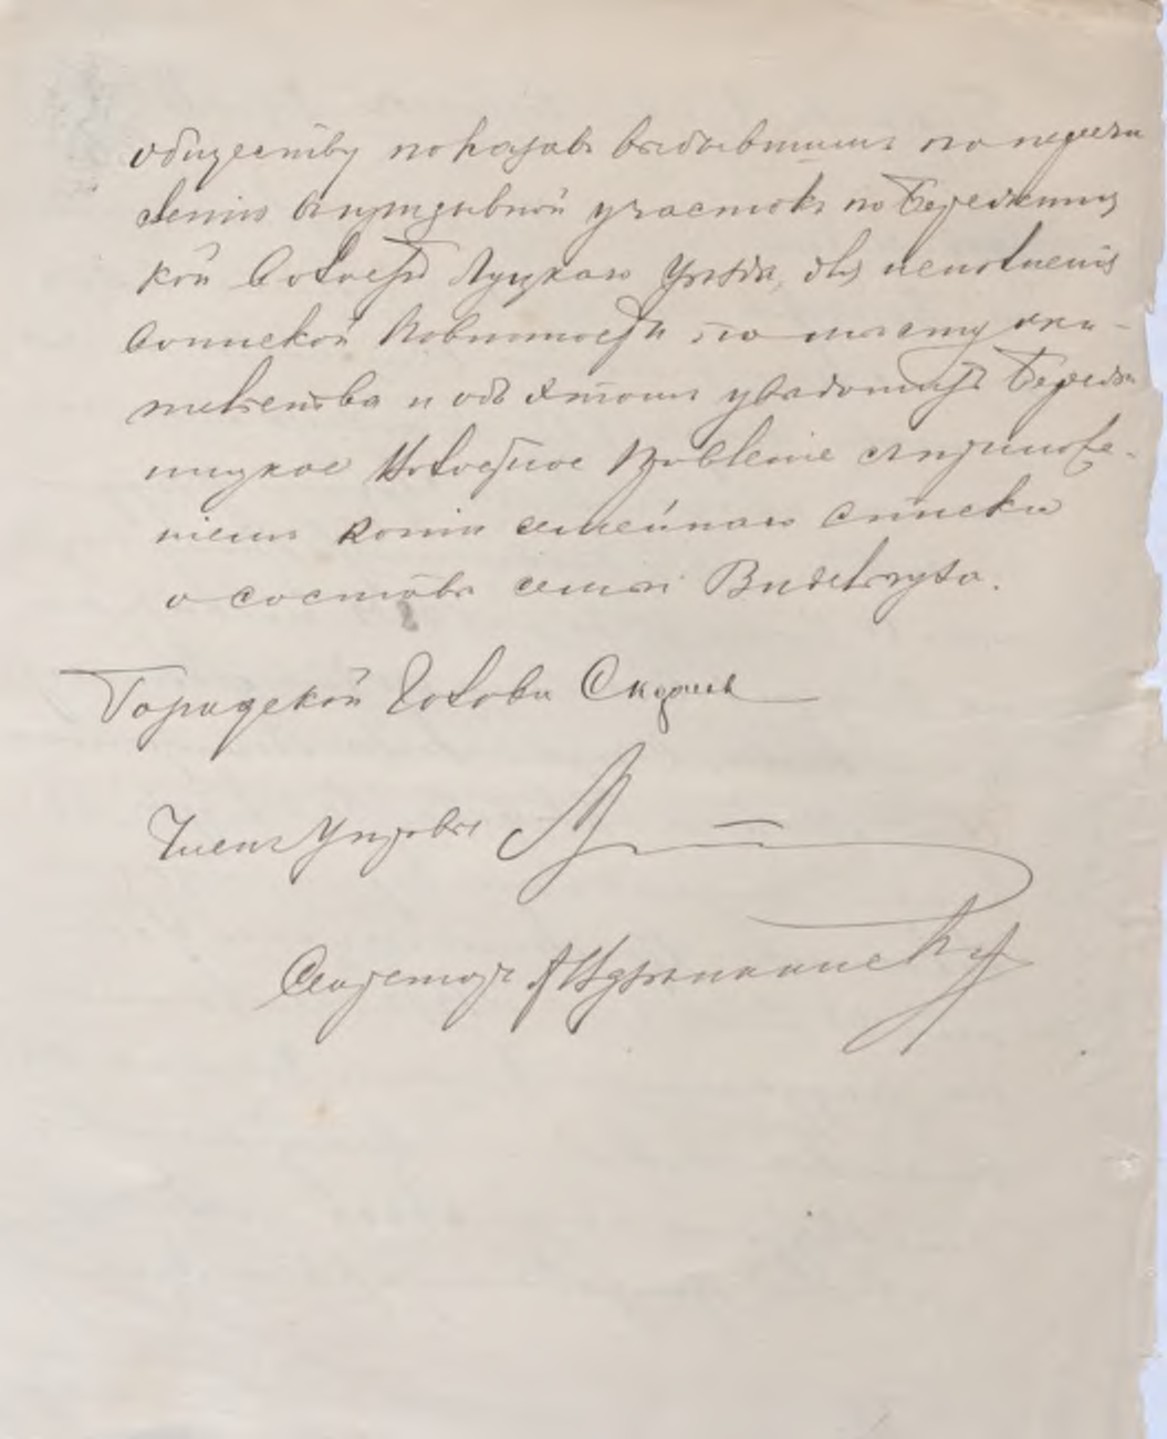 обществу показавъ выбывшимъ по перечи
сленію въ призывной участокъ по Бережниц
кой Волости Луцкаго Уѣзда, для исполненія
воинской повинности по мѣсту жи-
тельства и объ этомъ увѣдомить Береж
ницкое Волостное Правленіе съ приложе-
ніемъ копіи семейнаго списка
о составѣ семьи
Городской Голова
Членъ Управы
Секретарь